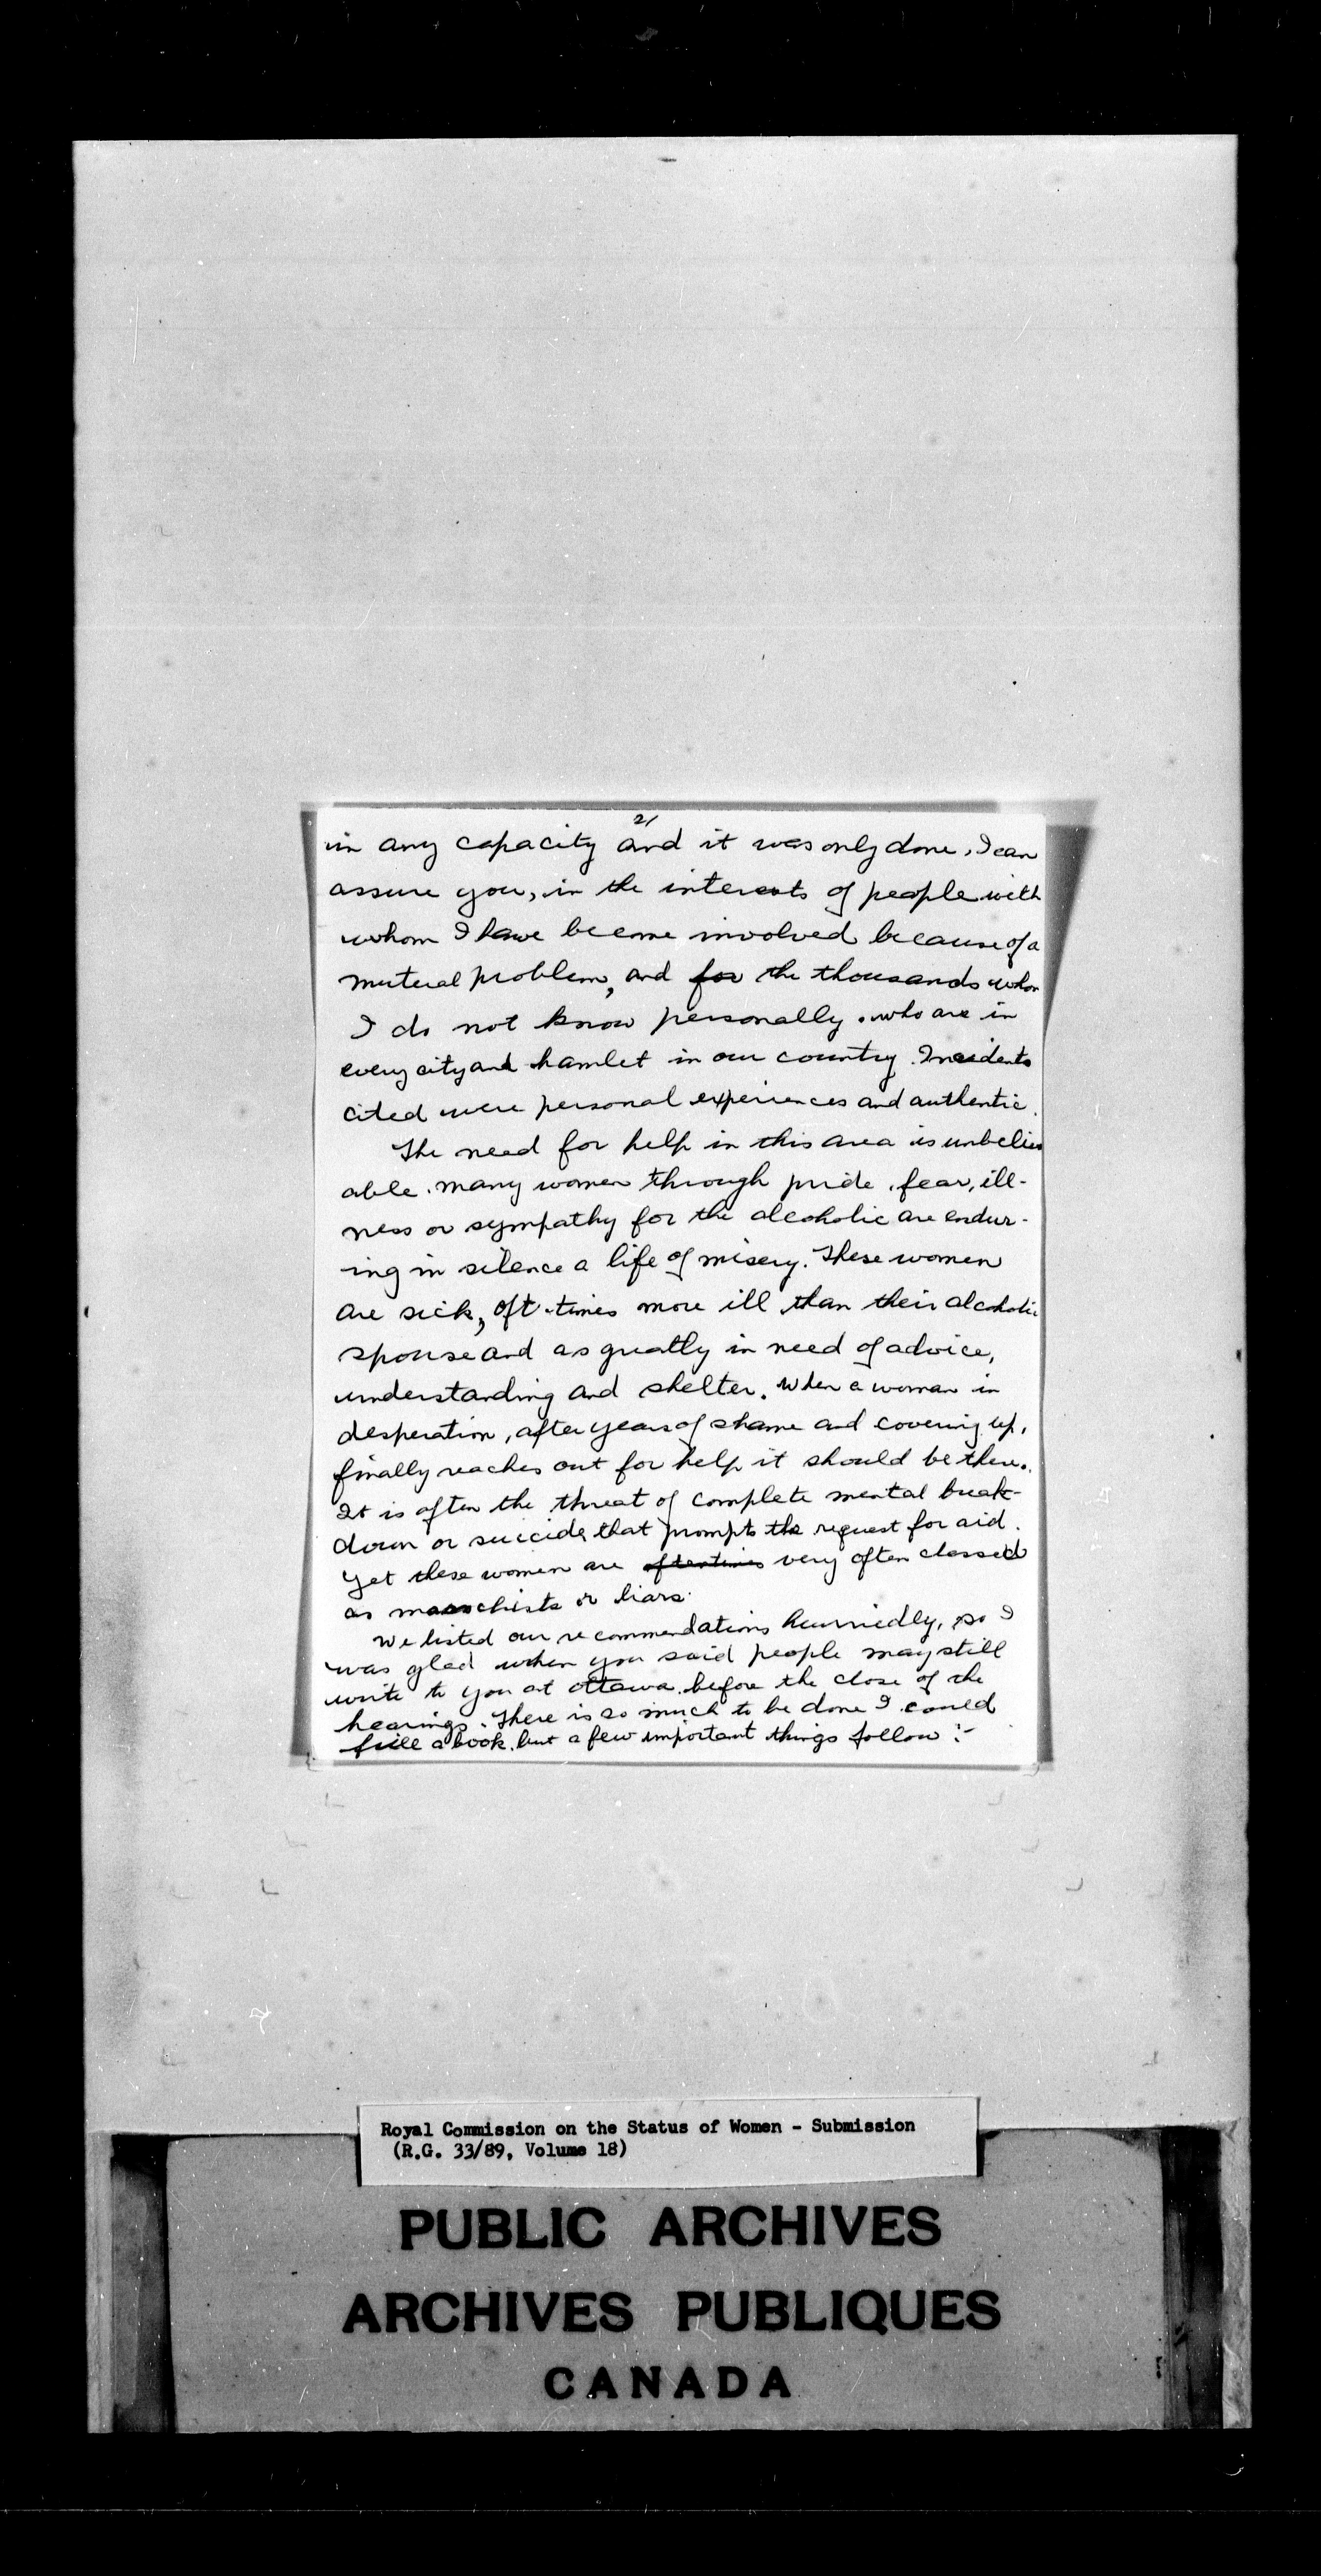 2/
in any capacity and it was only done, I can
assure you, in the interests of people with
whom I have become involved because of a
mutual problem, and for the thousands whom
I do not know personally. who are in
every city and hamlet in our country. Incidents
cited were personal experiences and authentic.
The need for help in this area is unbeliev
able. Many women through pride, fear, ill-
ness or sympathy for the alcoholic are endur-
ing in silence a life of misery. These women
are sick, oft-times more ill than their alcoholic
spouse and as greatly in need of advice,
understanding and shelter. When a woman in
desperation, after years of shame and covering up,
finally reaches out for help it should be there.
It is often the threat of complete mental break-
down or suicide that prompts the request for aid.
Yet these women are oftentimes very often classed
as masochists or liars.
We listed our recommendations hurriedly, so I
was glad when you said people may still
write to you at Ottawa before the close of the
hearings. There is so much to be done I could
fill a book, but a few important things follow :-
Royal Commission on the Status of Women - Submission
(R.G. 33/89, Volume 18)
PUBLIC ARCHIVES
ARCHIVES PUBLIQUES
CANADA